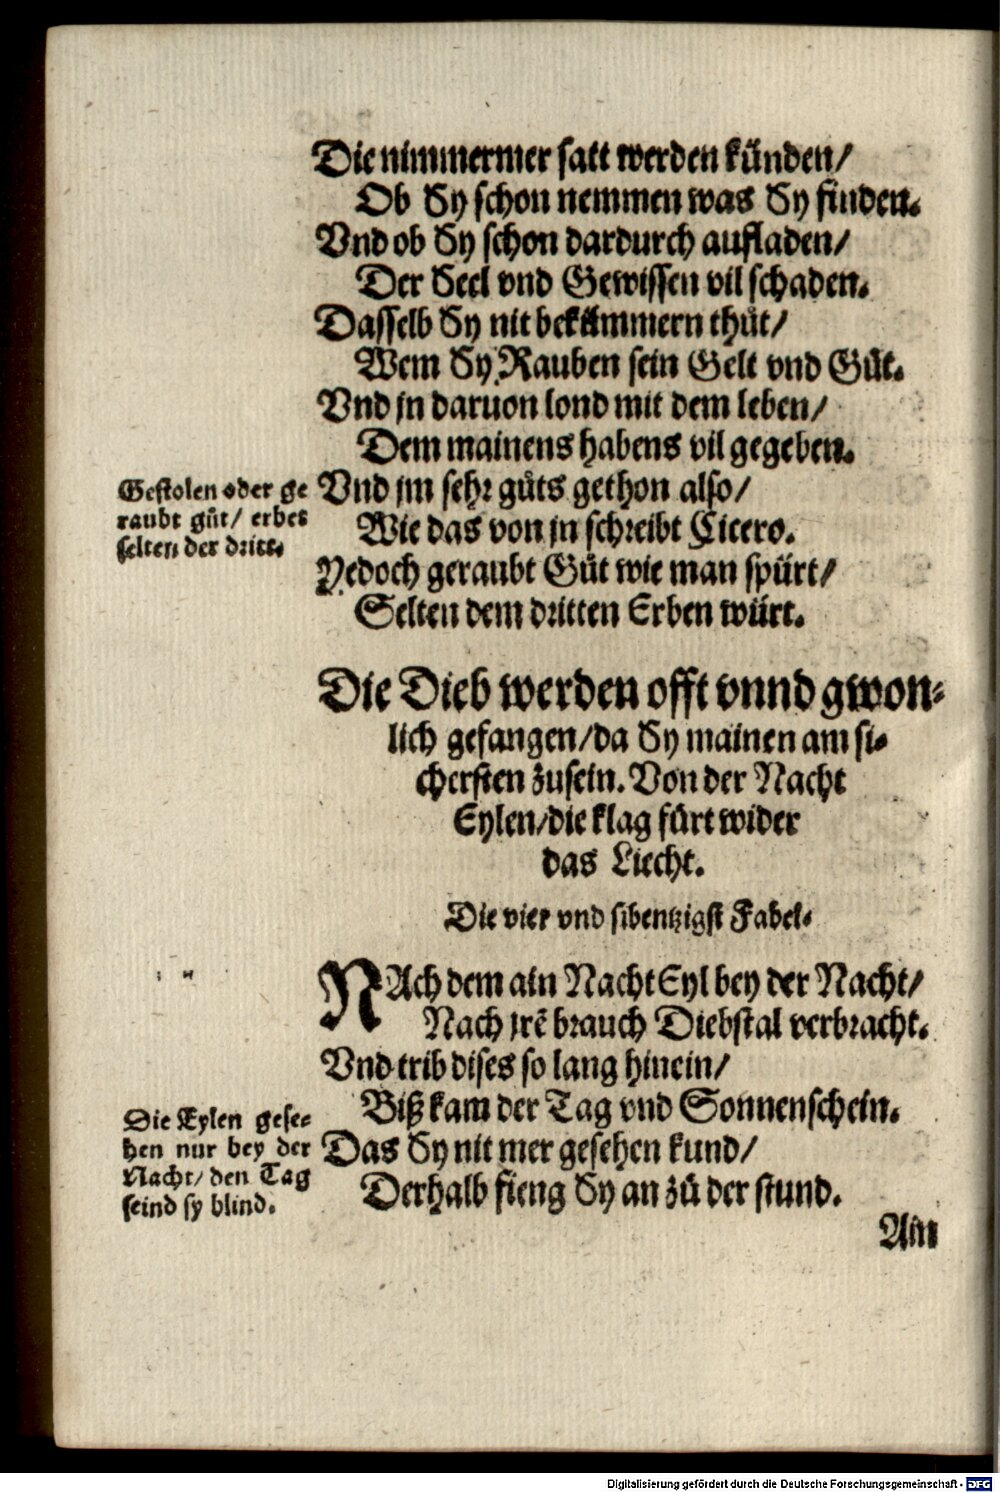 Die nimmermer satt werden künden/
Ob Sy schon nemmen was Sy finden.
Vnd ob Sy schon dardurch aufladen/
Der Seel vnd Gewissen vil schaden.
Dasselb Sy nit bekümmern thůt/
Wem Sy Rauben sein Gelt vnd Gůt.
Vnd jn daruon lond mit dem leben/
Dem mainens habens vil gegeben.
Gestolen oder ge
raubt gůt/ erbet
selten der dritt.
Vnd jm sehr gůts gethon also/
Wie das von jn schreibt Cicero.
Yedoch geraubt Gůt wie man spürt/
Selten dem dritten Erben würt.
Die Dieb werden offt vnnd gwon-
lich gefangen/da Sy mainen am si-
chersten zusein. Von der Nacht
Eylen/die klag fürt wider
das Liecht.
Die vier vnd sibentzigst Fabel.
NAch dem ain Nacht Eyl bey der Nacht/
Nach jrẽ brauch Diebstal verbracht.
Vnd trib dises so lang hinein/
Biß kam der Tag vnd Sonnenschein.
Die Eylen gese-
hen nur bey der
Nacht/ den Tag
seind sy blind.
Das Sy nit mer gesehen kund/
Derhalb fieng Sy an zů der stund.
Ain
Digitalisierung gefördert durch die Deutsche Forschungsgemeinschaft - DFG